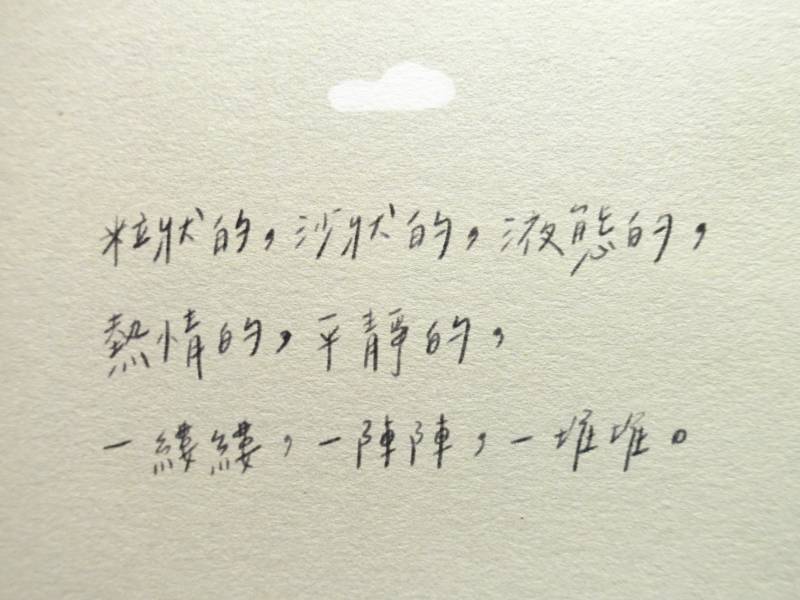 粒狀的，沙狀的，液態的，
熱情的，平靜的，
一縷縷，一陣陣，一堆堆。